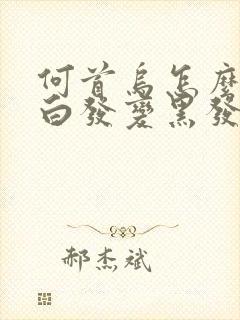 何首乌怎麽
白發變黑發
郝杰斌